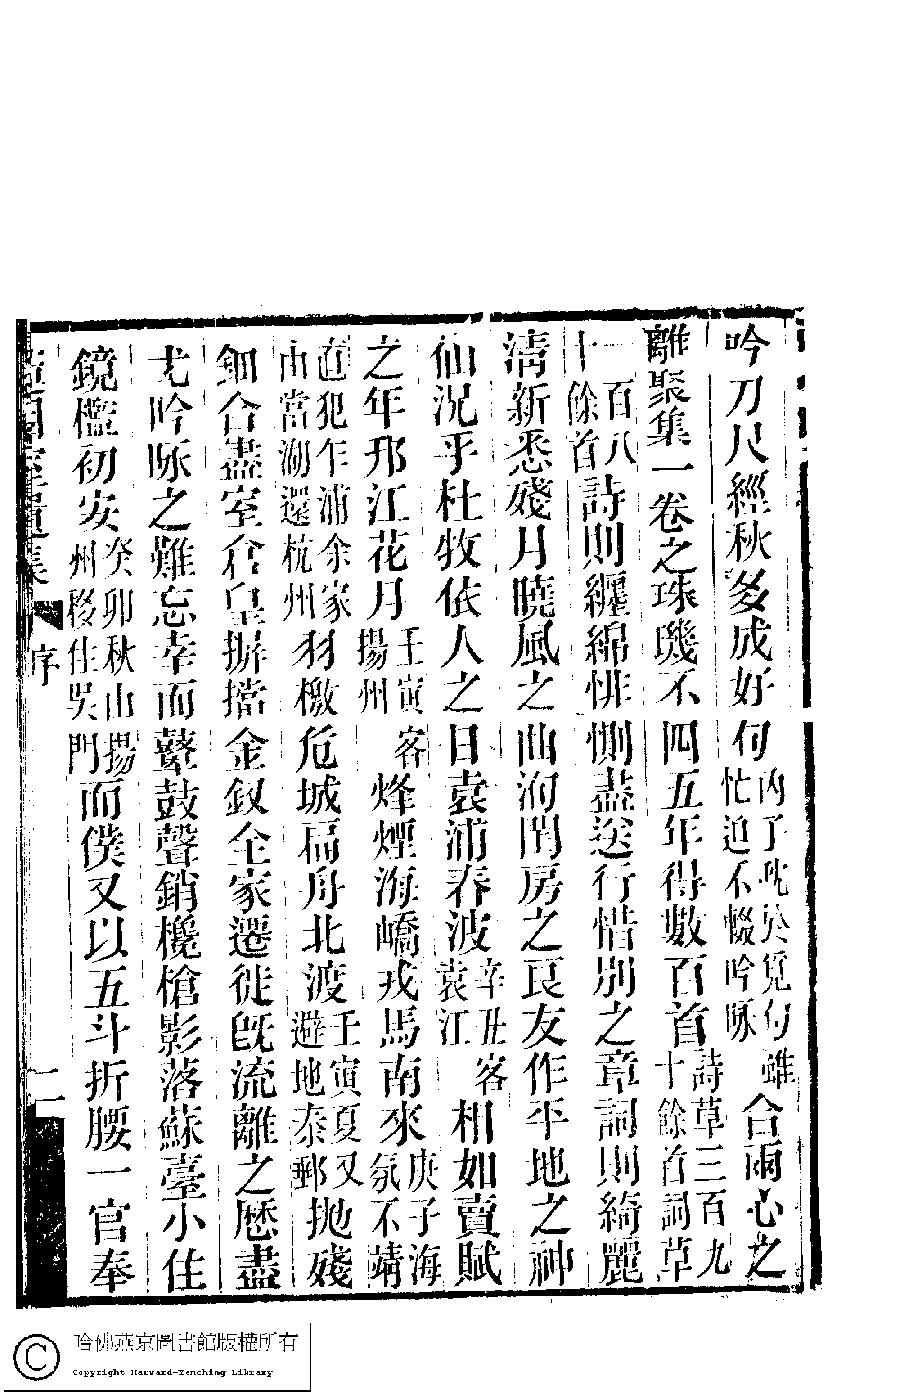 吟刀尺經秋多成好句內子耽於覓句雖忙迫不輟吟咏合兩心之
離聚集一卷之珠璣不四五年得數百首詩草三百九十餘首詞草
一百八十餘首詩則纏綿悱惻盡送行惜別之章詞則綺麗
清新悉殘月曉風之曲洵閨房之良友作平地之神
仙況乎杜牧依人之日袁浦春波辛丑客袁江相如賣賦
之年邗江花月壬寅客揚州烽煙海嶠戎馬南來庚子海氛不靖
直犯乍浦余家由當湖還杭州羽檄危城扁舟北渡壬寅夏又避地泰郵拋殘
鈿合盡室倉皇摒擋金釵全家遷徙既流離之歷盡
尤吟咏之難忘幸而鼙鼓聲銷欃槍影落蘇臺小住
鏡檻初安癸卯秋由揚州移住吳門而僕又以五斗折腰一官奉
室遺集 序 二
哈佛燕京圖書館版權所有
Copyright Harvard-Yenching Library